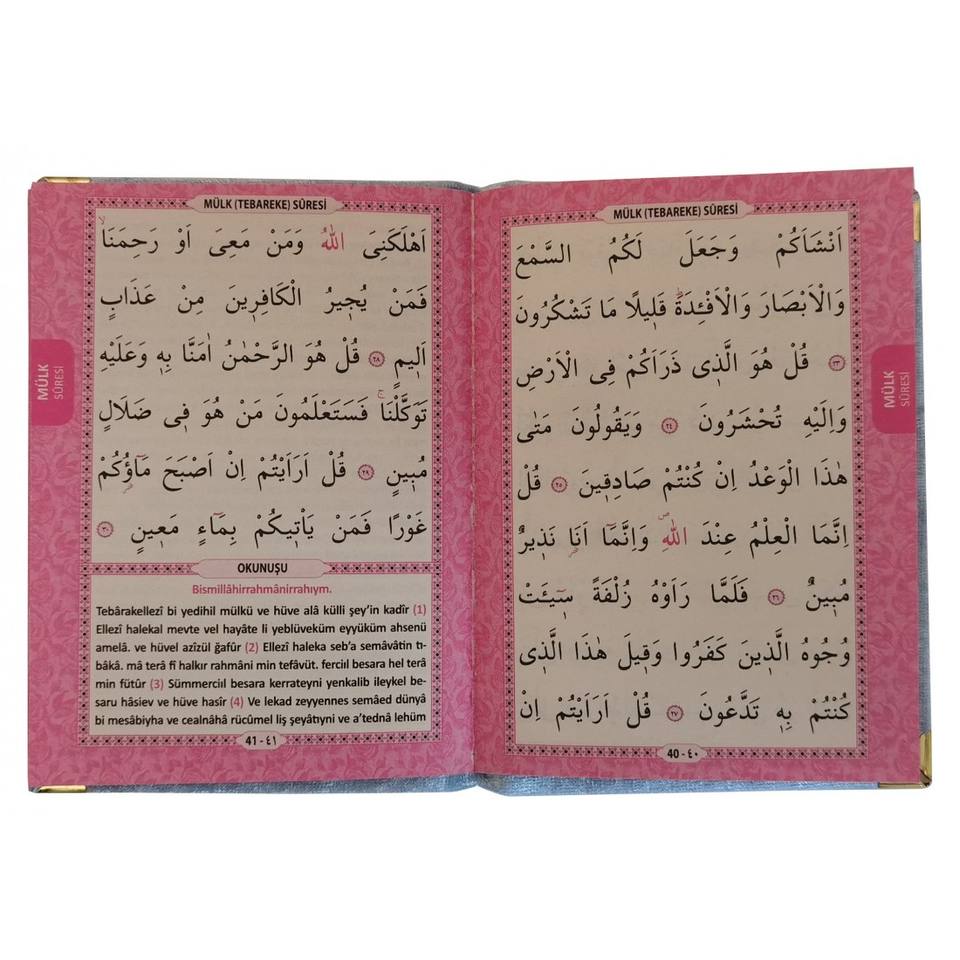 MÜLK (TEBAREKE) SÛRESİ
اَنْشَاَكُمْ وَجَعَلَ لَكُمُ السَّمْعَ
وَالْاَبْصَارَ وَالْاَفْـِٔدَةَۜ قَل۪يلًا مَا تَشْكُرُونَ
﴿٢٣﴾ قُلْ هُوَ الَّذ۪ى ذَرَاَكُمْ فِى الْاَرْضِ
وَاِلَيْهِ تُحْشَرُونَ ﴿٢٤﴾ وَيَقُولُونَ مَتٰى
هٰذَا الْوَعْدُ اِنْ كُنْتُمْ صَادِق۪ينَ ﴿٢٥﴾ قُلْ
اِنَّمَا الْعِلْمُ عِنْدَ اللّٰهِۖ وَاِنَّمَٓا اَنَا۬ نَذ۪يرٌ
مُب۪ينٌ ﴿٢٦﴾ فَلَمَّا رَاَوْهُ زُلْفَةً س۪ٓيـَٔتْ
وُجُوهُ الَّذ۪ينَ كَفَرُوا وَق۪يلَ هٰذَا الَّذ۪ى
كُنْتُمْ بِه۪ تَدَّعُونَ ﴿٢٧﴾ قُلْ اَرَاَيْتُمْ اِنْ
40 - ٤٠
MÜLK
SÛRESİ
MÜLK (TEBAREKE) SÛRESİ
اَهْلَكَنِىَ اللّٰهُ وَمَنْ مَعِىَ اَوْ رَحِمَنَاۙ
فَمَنْ يُج۪يرُ الْكَافِر۪ينَ مِنْ عَذَابٍ
اَل۪يمٍ ﴿٢٨﴾ قُلْ هُوَ الرَّحْمٰنُ اٰمَنَّا بِه۪ وَعَلَيْهِ
تَوَكَّلْنَاۚ فَسَتَعْلَمُونَ مَنْ هُوَ ف۪ى ضَلَالٍ
مُب۪ينٍ ﴿٢٩﴾ قُلْ اَرَاَيْتُمْ اِنْ اَصْبَحَ مَٓاؤُ۬كُمْ
غَوْرًا فَمَنْ يَأْت۪يكُمْ بِمَٓاءٍ مَع۪ينٍ ﴿٣٠﴾
OKUNUŞU
Bismillâhirrahmânirrahıym.
Tebârakellezî bi yedihil mülkü ve hüve alâ külli şey'in kadîr (1)
Ellezî halekal mevte vel hayâte li yeblüveküm eyyüküm ahsenü
amelâ. ve hüvel azîzül ğafûr (2) Ellezî haleka seb'a semâvâtin tı-
bâkâ. mâ terâ fî halkır rahmâni min tefâvüt. ferciıl besara hel terâ
min fütûr (3) Sümmerciıl besara kerrateyni yenkalib ileykel be-
saru hâsiev ve hüve hasîr (4) Ve lekad zeyyennes semâed dünyâ
bi mesâbiyha ve cealnâhâ rücûmel liş şeyâtıyni ve a'tednâ lehüm
41 - ٤١
MÜLK
SÛRESİ